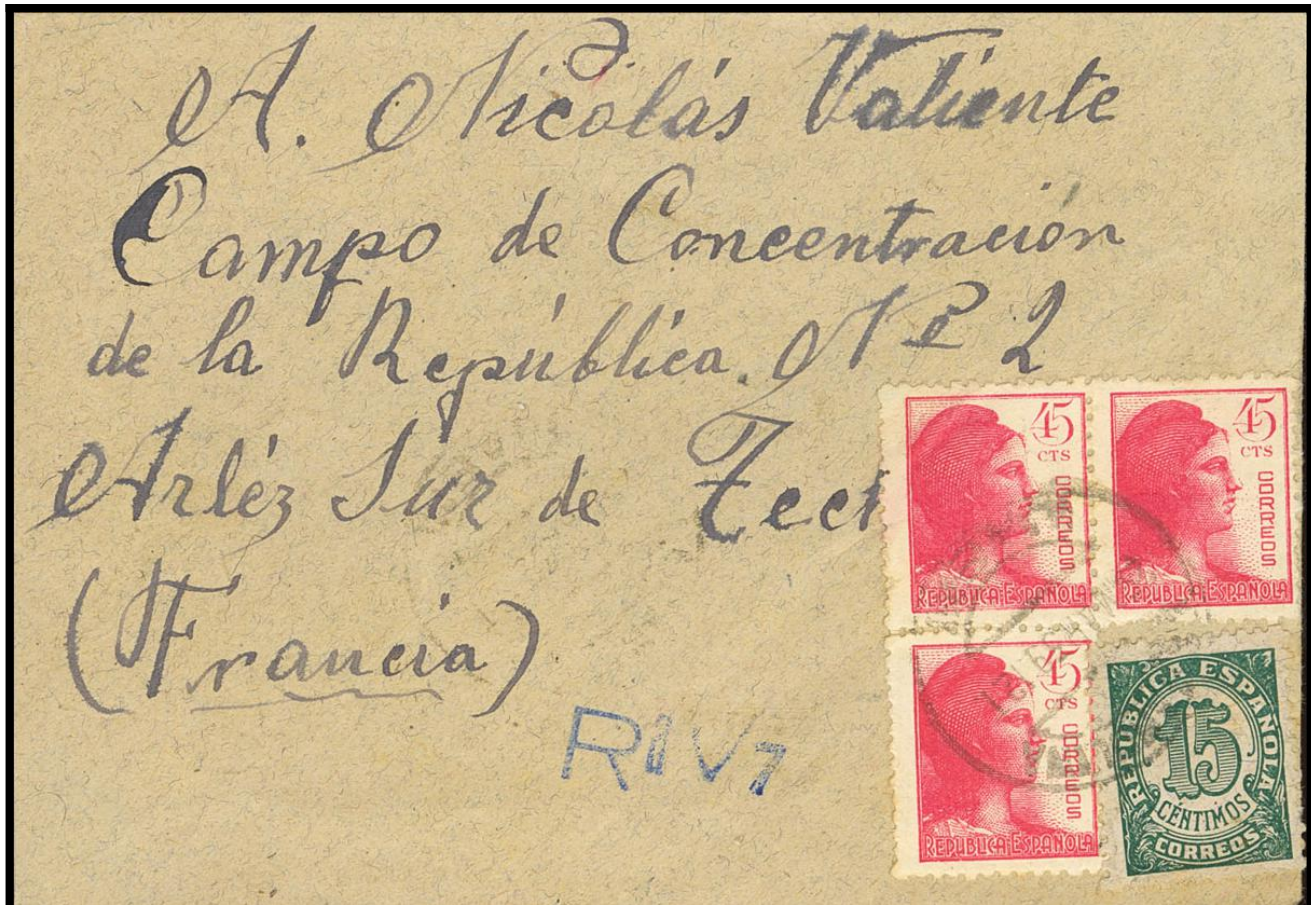 A. Nicolás Valiente
Campo de Concentración
de la República. Nº 2
Arléz Sur de Tech
(Francia)
45
CTS
CORREOS
REPUBLICA ESPAÑOLA
45
CTS
CORREOS
REPUBLICA ESPAÑOLA
45
CTS
CORREOS
REPUBLICA ESPAÑOLA
REPUBLICA ESPAÑOLA
15
CÉNTIMOS
CORREOS